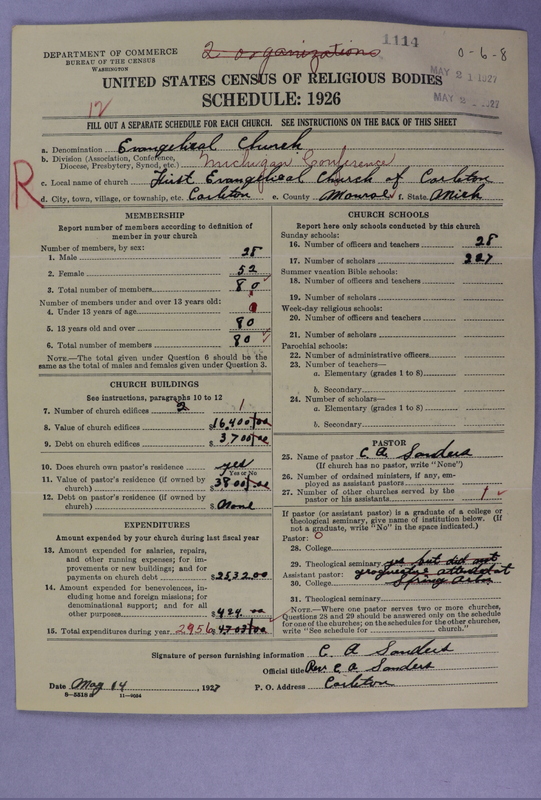 DEPARTMENT OF COMMERCE
BUREAU OF THE CENSUS
WASHINGTON
2 organizations
1114
0-6-8
MAY 21 1927
MAY 2 1927
UNITED STATES CENSUS OF RELIGIOUS BODIES
SCHEDULE: 1926
12
FILL OUT A SEPARATE SCHEDULE FOR EACH CHURCH. SEE INSTRUCTIONS ON THE BACK OF THIS SHEET
R
a. Denomination Evangelical Church
b. Division (Association, Conference, Diocese, Presbytery, Synod, etc.) Michigan Conference
c. Local name of church First Evangelical Church of Carleton
d. City, town, village, or township, etc. Carleton e. County Monroe f. State Mich
MEMBERSHIP
Report number of members according to definition of
member in your church
Number of members, by sex:
1. Male 28
2. Female 52
3. Total number of members 80
Number of members under and over 13 years old:
4. Under 13 years of age 0
5. 13 years old and over 80
6. Total number of members 80
NOTE.—The total given under Question 6 should be the
same as the total of males and females given under Question 3.
CHURCH BUILDINGS
See instructions, paragraphs 10 to 12
7. Number of church edifices 2 1
8. Value of church edifices $16,400.00
9. Debt on church edifices $3700.00
10. Does church own pastor's residence yes
Yes or No
11. Value of pastor's residence (if owned by
church) $3800.00
12. Debt on pastor's residence (if owned by
church) $None
EXPENDITURES
Amount expended by your church during last fiscal year
13. Amount expended for salaries, repairs,
and other running expenses; for im-
provements or new buildings; and for
payments on church debt $2532.00
14. Amount expended for benevolences, in-
cluding home and foreign missions; for
denominational support; and for all
other purposes $424.00
15. Total expenditures during year 2956 $4700.00
CHURCH SCHOOLS
Report here only schools conducted by this church
Sunday schools:
16. Number of officers and teachers 28
17. Number of scholars 227
Summer vacation Bible schools:
18. Number of officers and teachers
19. Number of scholars
Week-day religious schools:
20. Number of officers and teachers
21. Number of scholars
Parochial schools:
22. Number of administrative officers
23. Number of teachers—
a. Elementary (grades 1 to 8)
b. Secondary
24. Number of scholars—
a. Elementary (grades 1 to 8)
b. Secondary
PASTOR
25. Name of pastor C. A. Sanders
(If church has no pastor, write "None")
26. Number of ordained ministers, if any, em-
ployed as assistant pastors
27. Number of other churches served by the
pastor or his assistants 1
If pastor (or assistant pastor) is a graduate of a college or
theological seminary, give name of institution below. (If
not a graduate, write "No" in the space indicated.)
Pastor: O
28. College
29. Theological seminary yes but did not
Assistant pastor: graduate attended at
30. College Spring Arbor
31. Theological seminary
NOTE.—Where one pastor serves two or more churches,
Questions 28 and 29 should be answered only on the schedule
for one of the churches; on the schedules for the other churches,
write "See schedule for church."
Signature of person furnishing information C. A Sanders
Official title Rev C A Sanders
Date May 14, 1927 P. O. Address Carleton
8—5518 a 11—9034